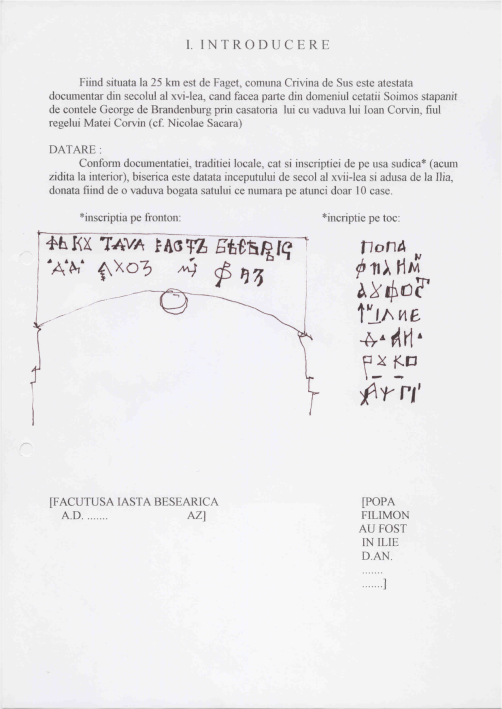 I. INTRODUCERE
Fiind situata la 25 km est de Faget, comuna Crivina de Sus este atestata
documentar din secolul al xvi-lea, cand facea parte din domeniul cetatii Soimos stapanit
de contele George de Brandenburg prin casatoria lui cu vaduva lui Ioan Corvin, fiul
regelui Matei Corvin (cf. Nicolae Sacara)
DATARE :
Conform documentatiei, traditiei locale, cat si inscriptiei de pe usa sudica* (acum
zidita la interior), biserica este datata inceputului de secol al xvii-lea si adusa de la Ilia,
donata fiind de o vaduva bogata satului ce numara pe atunci doar 10 case.
*inscriptia pe fronton:
*incriptie pe toc:
попа
[FACUTUSA IASTA BESEARICA
A.D. ....... AZ]
[POPA
FILIMON
AU FOST
IN ILIE
D.AN.
.......
.......]